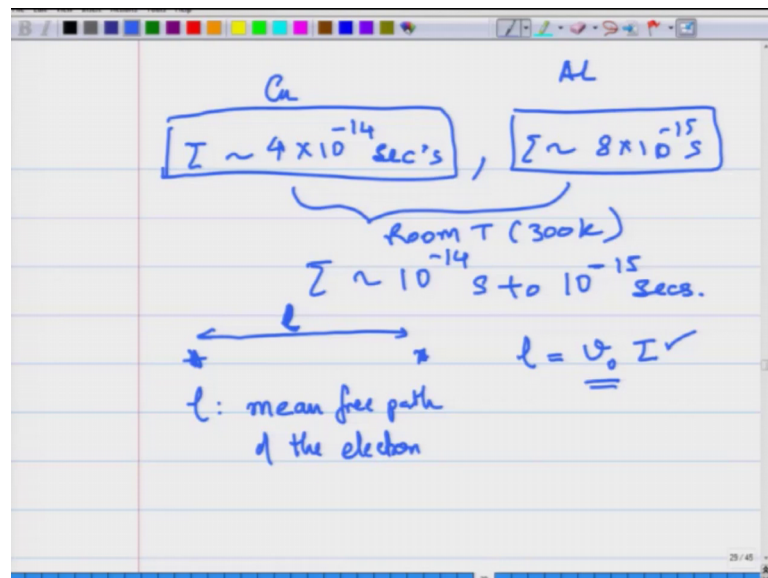 Cu AL
τ ~ 4 × 10⁻¹⁴ sec's , τ ~ 8 × 10⁻¹⁵ s
Room T (300k)
τ ~ 10⁻¹⁴ s to 10⁻¹⁵ secs.
l
l = v₀ τ ✓
l : mean free path
of the electron
29 / 45